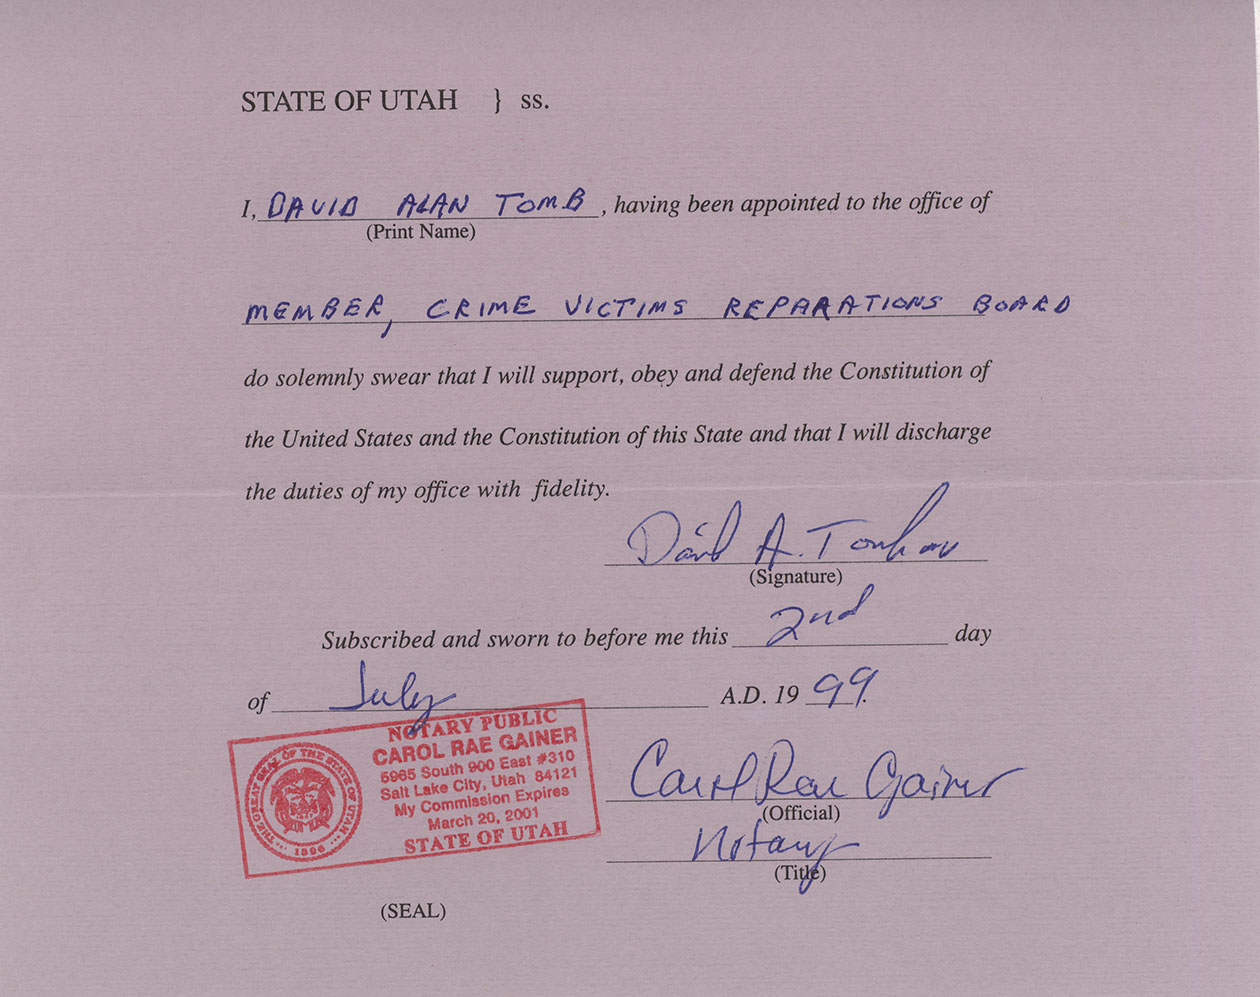 STATE OF UTAH } ss.
I, DAVID ALAN TOMB, having been appointed to the office of
(Print Name)
MEMBER, CRIME VICTIMS REPARATIONS BOARD
do solemnly swear that I will support, obey and defend the Constitution of
the United States and the Constitution of this State and that I will discharge
the duties of my office with fidelity.
David A. Tomb
(Signature)
Subscribed and sworn to before me this 2nd day
of July A.D. 1999.
NOTARY PUBLIC
CAROL RAE GAINER
5965 South 900 East #310
Salt Lake City, Utah 84121
My Commission Expires
March 20, 2001
STATE OF UTAH
THE GREAT SEAL OF THE STATE OF UTAH
1896
Carol Rae Gainer
(Official)
Notary
(Title)
(SEAL)